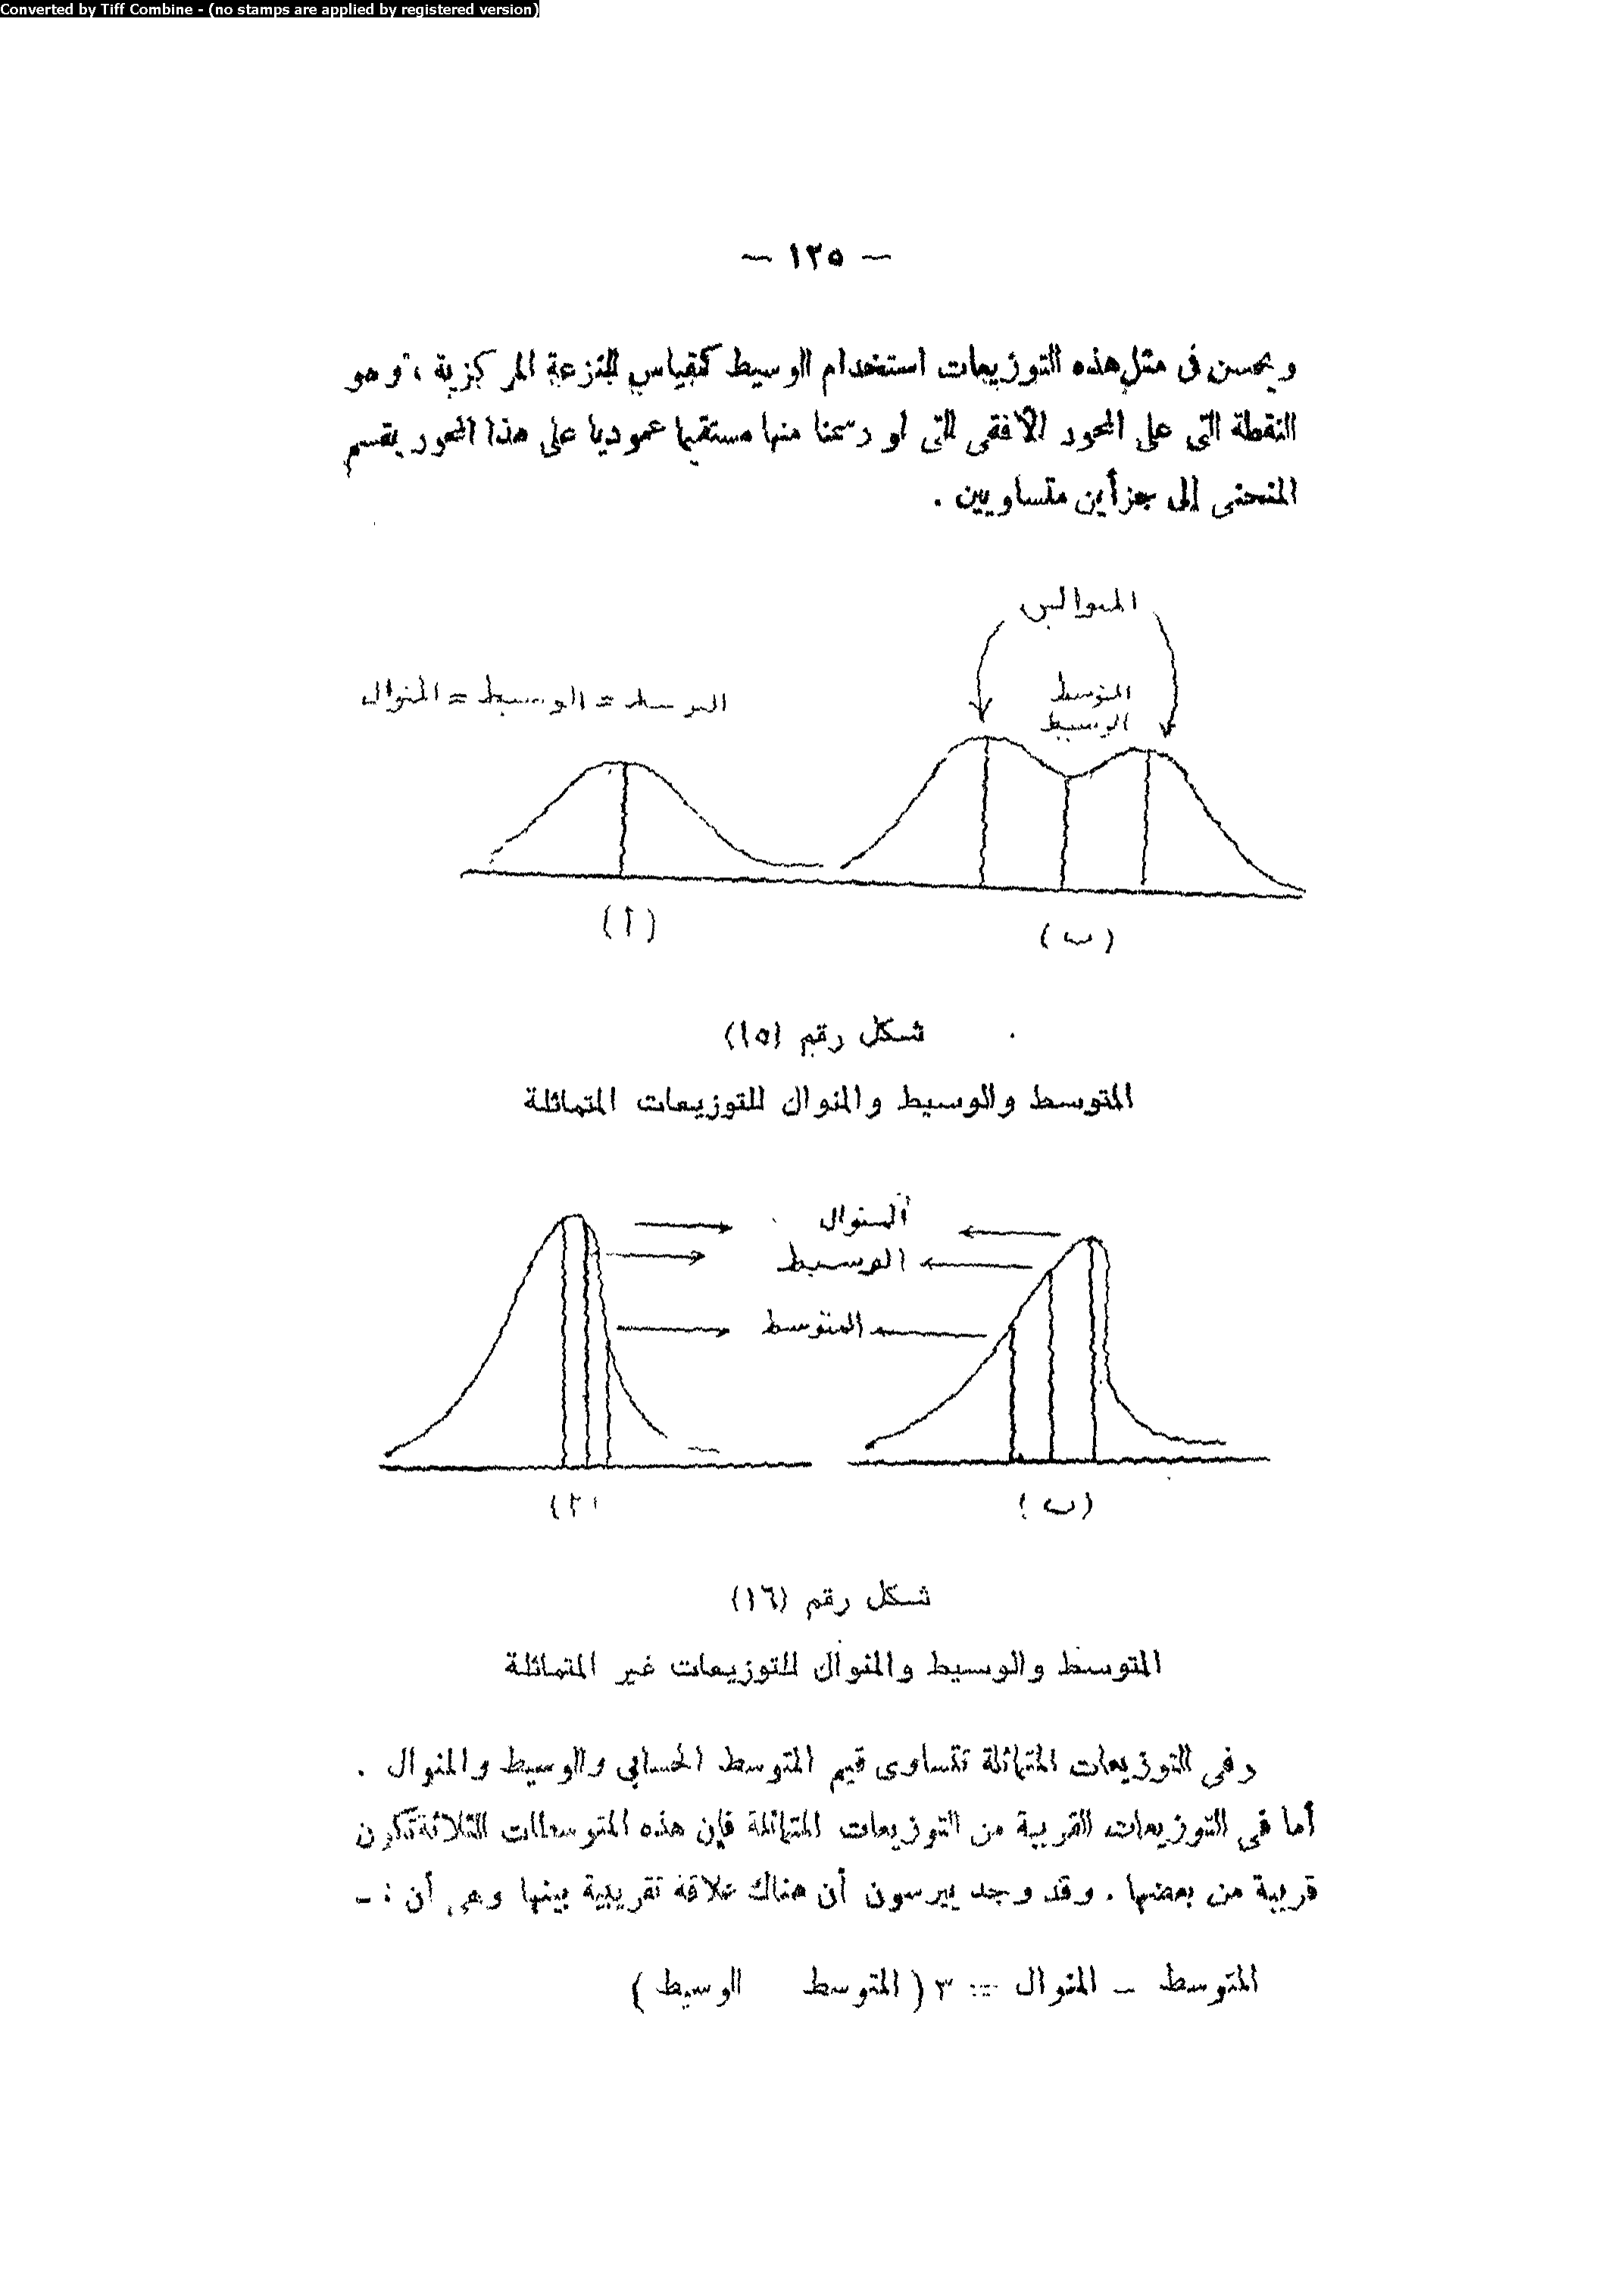 Converted by Tiff Combine - (no stamps are applied by registered version)
— ١٢٥ —
ويحسن فى مثل هذه التوزيعات استخدام الوسيط كمقياس للنزعة المركزية ، وهو
النقطة التى على المحور الأفقى التى لو رسمنا منها مستقيما عموديا على هذا المحور يقسم
المنحنى إلى جزأين متساويين .
المتوسط
الوسيط
= الوسيط = المنوال
(أ)
(ب)
شكل رقم (١٥)
المتوسط والوسيط والمنوال للتوزيعات المتماثلة
المنوال
الوسيط
المتوسط
(أ)
(ب)
شكل رقم (١٦)
المتوسط والوسيط والمنوال للتوزيعات غير المتماثلة
وفى التوزيعات المتماثلة تتساوى قيم المتوسط الحسابى والوسيط والمنوال .
أما فى التوزيعات القريبة من التوزيعات المتماثلة فإن هذه المتوسطات الثلاثة تكون
قريبة من بعضها . وقد وجد بيرسون أن هناك علاقة تقريبية بينها وهى أن : ـ
المتوسط ـ المنوال = ٣ ( المتوسط الوسيط )